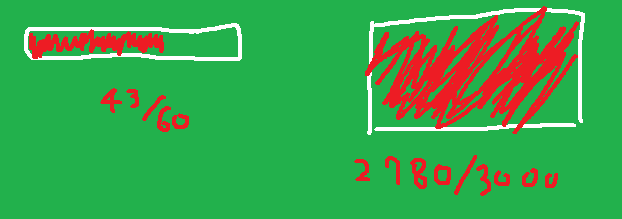 43/60
2780/3000